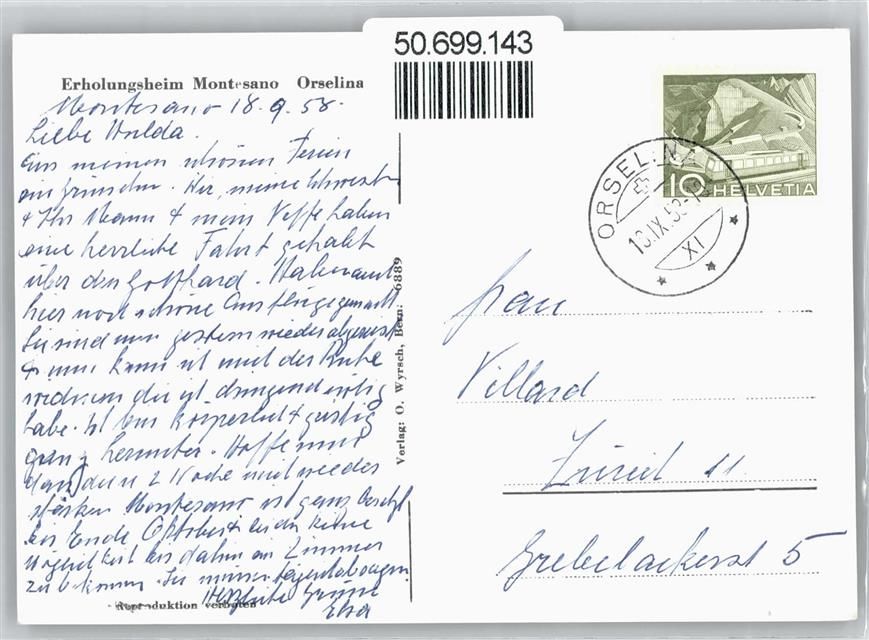 50.699.143
Erholungsheim Montesano Orselina
Montesano 18.9.58.
Liebe Hulda.
Aus meinen schönen Ferien
ein Grüsschen. Wir, meine Schwester
+ Ihr Mann + mein Neffe haben
eine herrliche Fahrt gehabt
über den Gotthard. Haben auch
hier noch schöne Ausflüge gemacht.
Sie sind nun gestern wieder abgereist
+ nun kann ich mich der Ruhe
widmen die ich dringend nötig
habe. Ich bin körperlich + geistig
ganz herunter. Hoffe mich
dann in 2 Woche mich wieder
stärken Montesano ist ganz besetzt
bis Ende Oktober + leider keine
Möglichkeit bis dahin ein Zimmer
zu bekommen.
Herzliche Grüsse
Elsa
Reproduktion verboten
Verlag: O. Wyrsch, Bern. 6889
10 HELVETIA
ORSELINA
18.IX.58
XI
Frau
Villard
Zürich 11
Grebelackerst 5